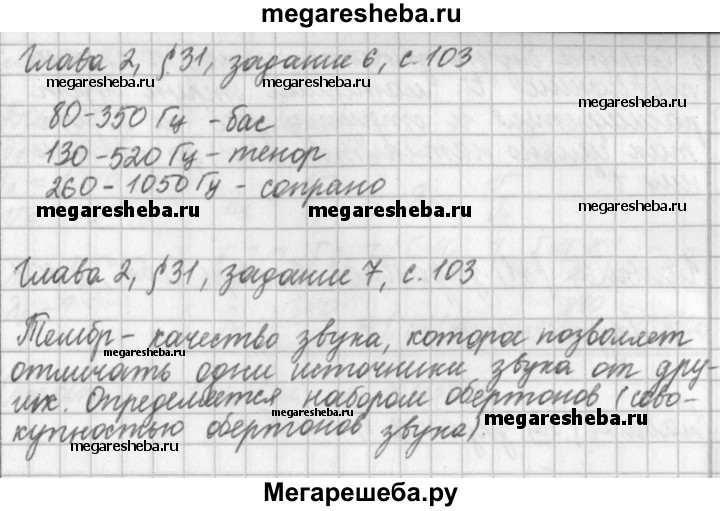 megaresheba.ru
Глава 2, §31, задание 6, с. 103
megaresheba.ru megaresheba.ru megaresheba.ru
80-350 Гц - бас
130-520 Гц - тенор
260-1050 Гц - сопрано
megaresheba.ru megaresheba.ru megaresheba.ru
Глава 2, §31, задание 7, с. 103
Тембр - качество звука, которое позволяет
megaresheba.ru megaresheba.ru
отличать одни источники звука от дру-
гих. Определяется набором обертонов (сово-
megaresheba.ru megaresheba.ru
купностью обертонов звука).
megaresheba.ru
Мегарешеба.ру